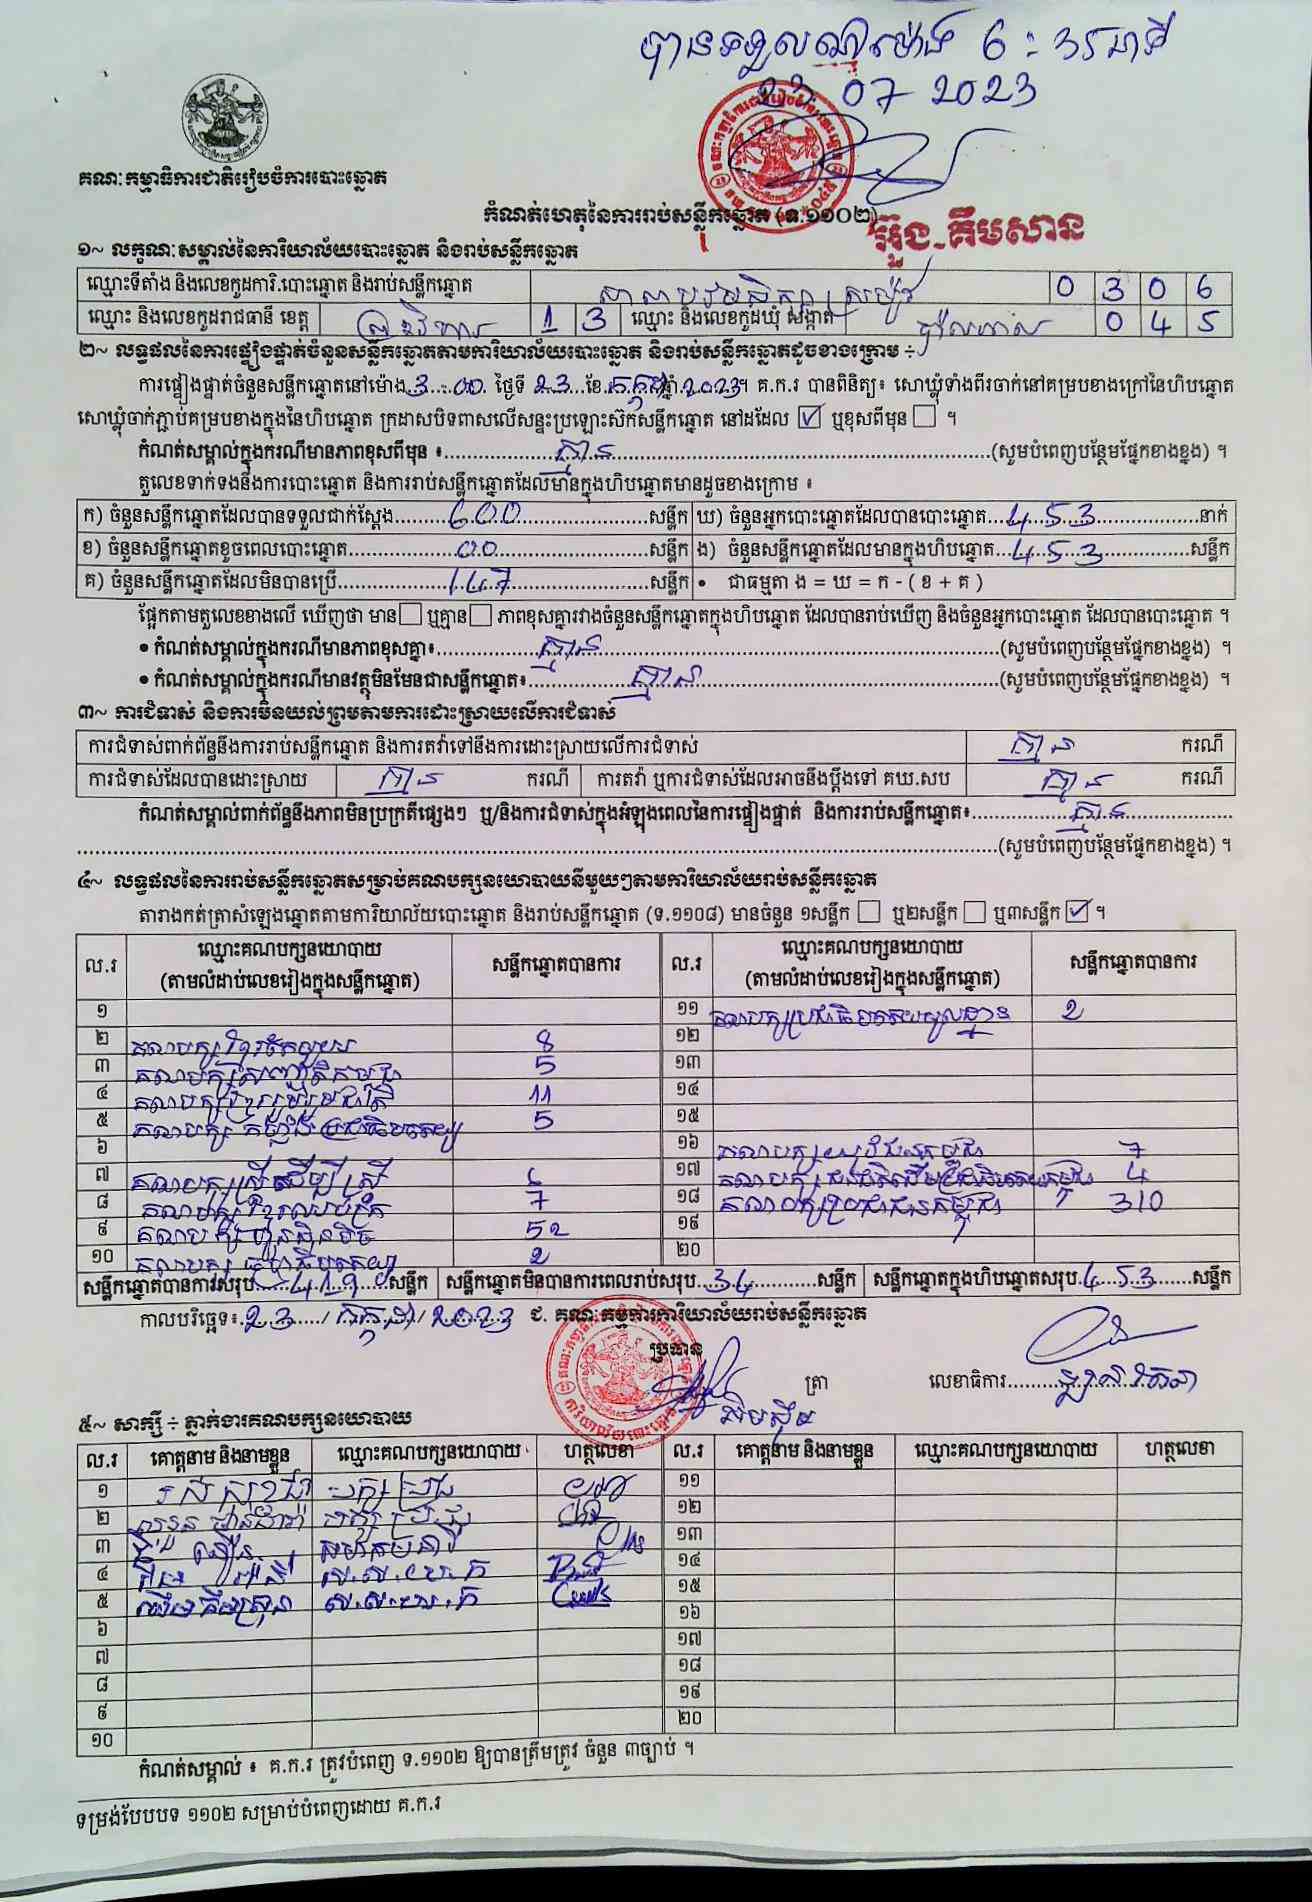 បានទទួលនៅម៉ោង 6 : 35 នាទី
23 07 2023
គណៈកម្មាធិការជាតិរៀបចំការបោះឆ្នោត
កំណត់ហេតុនៃការរាប់សន្លឹកឆ្នោត (ទ.១១០២)
អ៊ួង.គឹមសាន
១~ លក្ខណៈសម្គាល់នៃការិយាល័យបោះឆ្នោត និងរាប់សន្លឹកឆ្នោត
ឈ្មោះទីតាំង និងលេខកូដការិ.បោះឆ្នោត និងរាប់សន្លឹកឆ្នោត សាលាបឋមសិក្សា 0 3 0 6
ឈ្មោះ និងលេខកូដរាជធានី ខេត្ត ព្រះវិហារ 1 3 ឈ្មោះ និងលេខកូដឃុំ សង្កាត់ 0 4 5
២~ លទ្ធផលនៃការផ្ទៀងផ្ទាត់ចំនួនសន្លឹកឆ្នោតតាមការិយាល័យបោះឆ្នោត និងរាប់សន្លឹកឆ្នោតដូចខាងក្រោម ÷
ការផ្ទៀងផ្ទាត់ចំនួនសន្លឹកឆ្នោតនៅម៉ោង 3:00 ថ្ងៃទី 23 ខែ កក្កដា ឆ្នាំ 2023 ។ គ.ក.រ បានពិនិត្យ៖ សោឃ្លុំទាំងពីរចាក់នៅគម្របខាងក្រៅនៃហិបឆ្នោត
សោឃ្លុំចាក់ភ្ជាប់គម្របខាងក្នុងនៃហិបឆ្នោត ក្រដាសបិទពាសលើសន្ទះប្រឡោះស៊កសន្លឹកឆ្នោត នៅដដែល ☑ ឬខុសពីមុន ☐ ។
កំណត់សម្គាល់ក្នុងករណីមានភាពខុសពីមុន ៖ គ្មាន (សូមបំពេញបន្ថែមផ្នែកខាងខ្នង) ។
តួលេខទាក់ទងនឹងការបោះឆ្នោត និងការរាប់សន្លឹកឆ្នោតដែលមានក្នុងហិបឆ្នោតមានដូចខាងក្រោម ៖
ក) ចំនួនសន្លឹកឆ្នោតដែលបានទទួលជាក់ស្តែង 600 សន្លឹក ឃ) ចំនួនអ្នកបោះឆ្នោតដែលបានបោះឆ្នោត 453 នាក់
ខ) ចំនួនសន្លឹកឆ្នោតខូចពេលបោះឆ្នោត 00 សន្លឹក ង) ចំនួនសន្លឹកឆ្នោតដែលមានក្នុងហិបឆ្នោត 453 សន្លឹក
គ) ចំនួនសន្លឹកឆ្នោតដែលមិនបានប្រើ 147 សន្លឹក • ជាធម្មតា ង = ឃ = ក - ( ខ + គ )
ផ្អែកតាមតួលេខខាងលើ ឃើញថា មាន ☐ ឬគ្មាន ☐ ភាពខុសគ្នារវាងចំនួនសន្លឹកឆ្នោតក្នុងហិបឆ្នោត ដែលបានរាប់ឃើញ និងចំនួនអ្នកបោះឆ្នោត ដែលបានបោះឆ្នោត ។
• កំណត់សម្គាល់ក្នុងករណីមានភាពខុសគ្នា៖ គ្មាន (សូមបំពេញបន្ថែមផ្នែកខាងខ្នង) ។
• កំណត់សម្គាល់ក្នុងករណីមានវត្ថុមិនមែនជាសន្លឹកឆ្នោត៖ គ្មាន (សូមបំពេញបន្ថែមផ្នែកខាងខ្នង) ។
៣~ ការជំទាស់ និងការមិនយល់ព្រមតាមការដោះស្រាយលើការជំទាស់
ការជំទាស់ពាក់ព័ន្ធនឹងការរាប់សន្លឹកឆ្នោត និងការតវ៉ាទៅនឹងការដោះស្រាយលើការជំទាស់ គ្មាន ករណី
ការជំទាស់ដែលបានដោះស្រាយ គ្មាន ករណី ការតវ៉ា ឬការជំទាស់ដែលអាចនឹងប្តឹងទៅ គឃ.សប គ្មាន ករណី
កំណត់សម្គាល់ពាក់ព័ន្ធនឹងភាពមិនប្រក្រតីផ្សេងៗ ឬ/និងការជំទាស់ក្នុងអំឡុងពេលនៃការផ្ទៀងផ្ទាត់ និងការរាប់សន្លឹកឆ្នោត៖ គ្មាន
(សូមបំពេញបន្ថែមផ្នែកខាងខ្នង) ។
៤~ លទ្ធផលនៃការរាប់សន្លឹកឆ្នោតសម្រាប់គណបក្សនយោបាយនីមួយៗតាមការិយាល័យរាប់សន្លឹកឆ្នោត
តារាងកត់ត្រាសំឡេងឆ្នោតតាមការិយាល័យបោះឆ្នោត និងរាប់សន្លឹកឆ្នោត (ទ.១១០៨) មានចំនួន ១សន្លឹក ☐ ឬ២សន្លឹក ☐ ឬ៣សន្លឹក ☑ ។
ល.រ ឈ្មោះគណបក្សនយោបាយ (តាមលំដាប់លេខរៀងក្នុងសន្លឹកឆ្នោត) សន្លឹកឆ្នោតបានការ ល.រ ឈ្មោះគណបក្សនយោបាយ (តាមលំដាប់លេខរៀងក្នុងសន្លឹកឆ្នោត) សន្លឹកឆ្នោតបានការ
១ ១១ គណបក្សប្រជាធិបតេយ្យមូលដ្ឋាន 2
២ គណបក្សខ្មែរឈប់ក្រ 8 ១២
៣ 5 ១៣
៤ គណបក្សខ្មែររួបរួមជាតិ 11 ១៤
៥ គណបក្ស កម្លាំងប្រជាធិបតេយ្យ 5 ១៥
៦ ១៦ គណបក្សយុវជនកម្ពុជា 7
៧ គណបក្សស្ត្រីដើម្បីស្ត្រី 6 ១៧ គណបក្សជនជាតិដើមប្រជាធិបតេយ្យកម្ពុជា 4
៨ 7 ១៨ គណបក្សប្រជាជនកម្ពុជា 310
៩ គណបក្សហ្វ៊ុនស៊ិនប៉ិច 52 ១៩
១០ 2 ២០
សន្លឹកឆ្នោតបានការសរុប 419 សន្លឹក សន្លឹកឆ្នោតមិនបានការពេលរាប់សរុប 34 សន្លឹក សន្លឹកឆ្នោតក្នុងហិបឆ្នោតសរុប 453 សន្លឹក
កាលបរិច្ឆេទ៖ 23 / កក្កដា / 2023 ជ. គណៈកម្មការការិយាល័យរាប់សន្លឹកឆ្នោត
ប្រធាន
ត្រា លេខាធិការ
៥~ សាក្សី ÷ ភ្នាក់ងារគណបក្សនយោបាយ
ល.រ គោត្តនាម និងនាមខ្លួន ឈ្មោះគណបក្សនយោបាយ ហត្ថលេខា ល.រ គោត្តនាម និងនាមខ្លួន ឈ្មោះគណបក្សនយោបាយ ហត្ថលេខា
១ ១១
២ ១២
៣ សមាគមនារី ១៣
៤ ស.ស.យ.ក ១៤
៥ ស.ស.យ.ក ១៥
៦ ១៦
៧ ១៧
៨ ១៨
៩ ១៩
១០ ២០
កំណត់សម្គាល់ ៖ គ.ក.រ ត្រូវបំពេញ ទ.១១០២ ឱ្យបានត្រឹមត្រូវ ចំនួន ៣ច្បាប់ ។
ទម្រង់បែបបទ ១១០២ សម្រាប់បំពេញដោយ គ.ក.រ